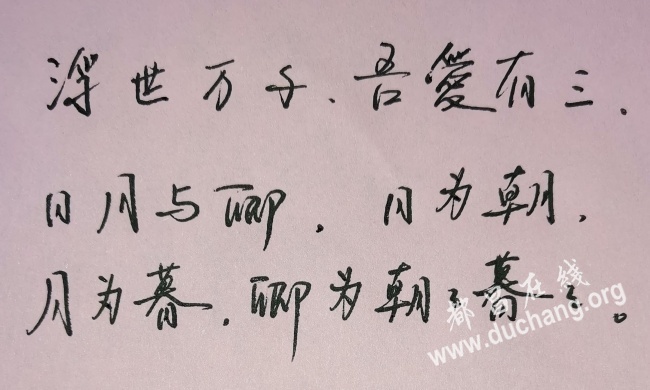 浮世万千、吾愛有三.
日月与卿. 日为朝,
月为暮, 卿为朝々暮々。
都昌在线
www.duchang.org